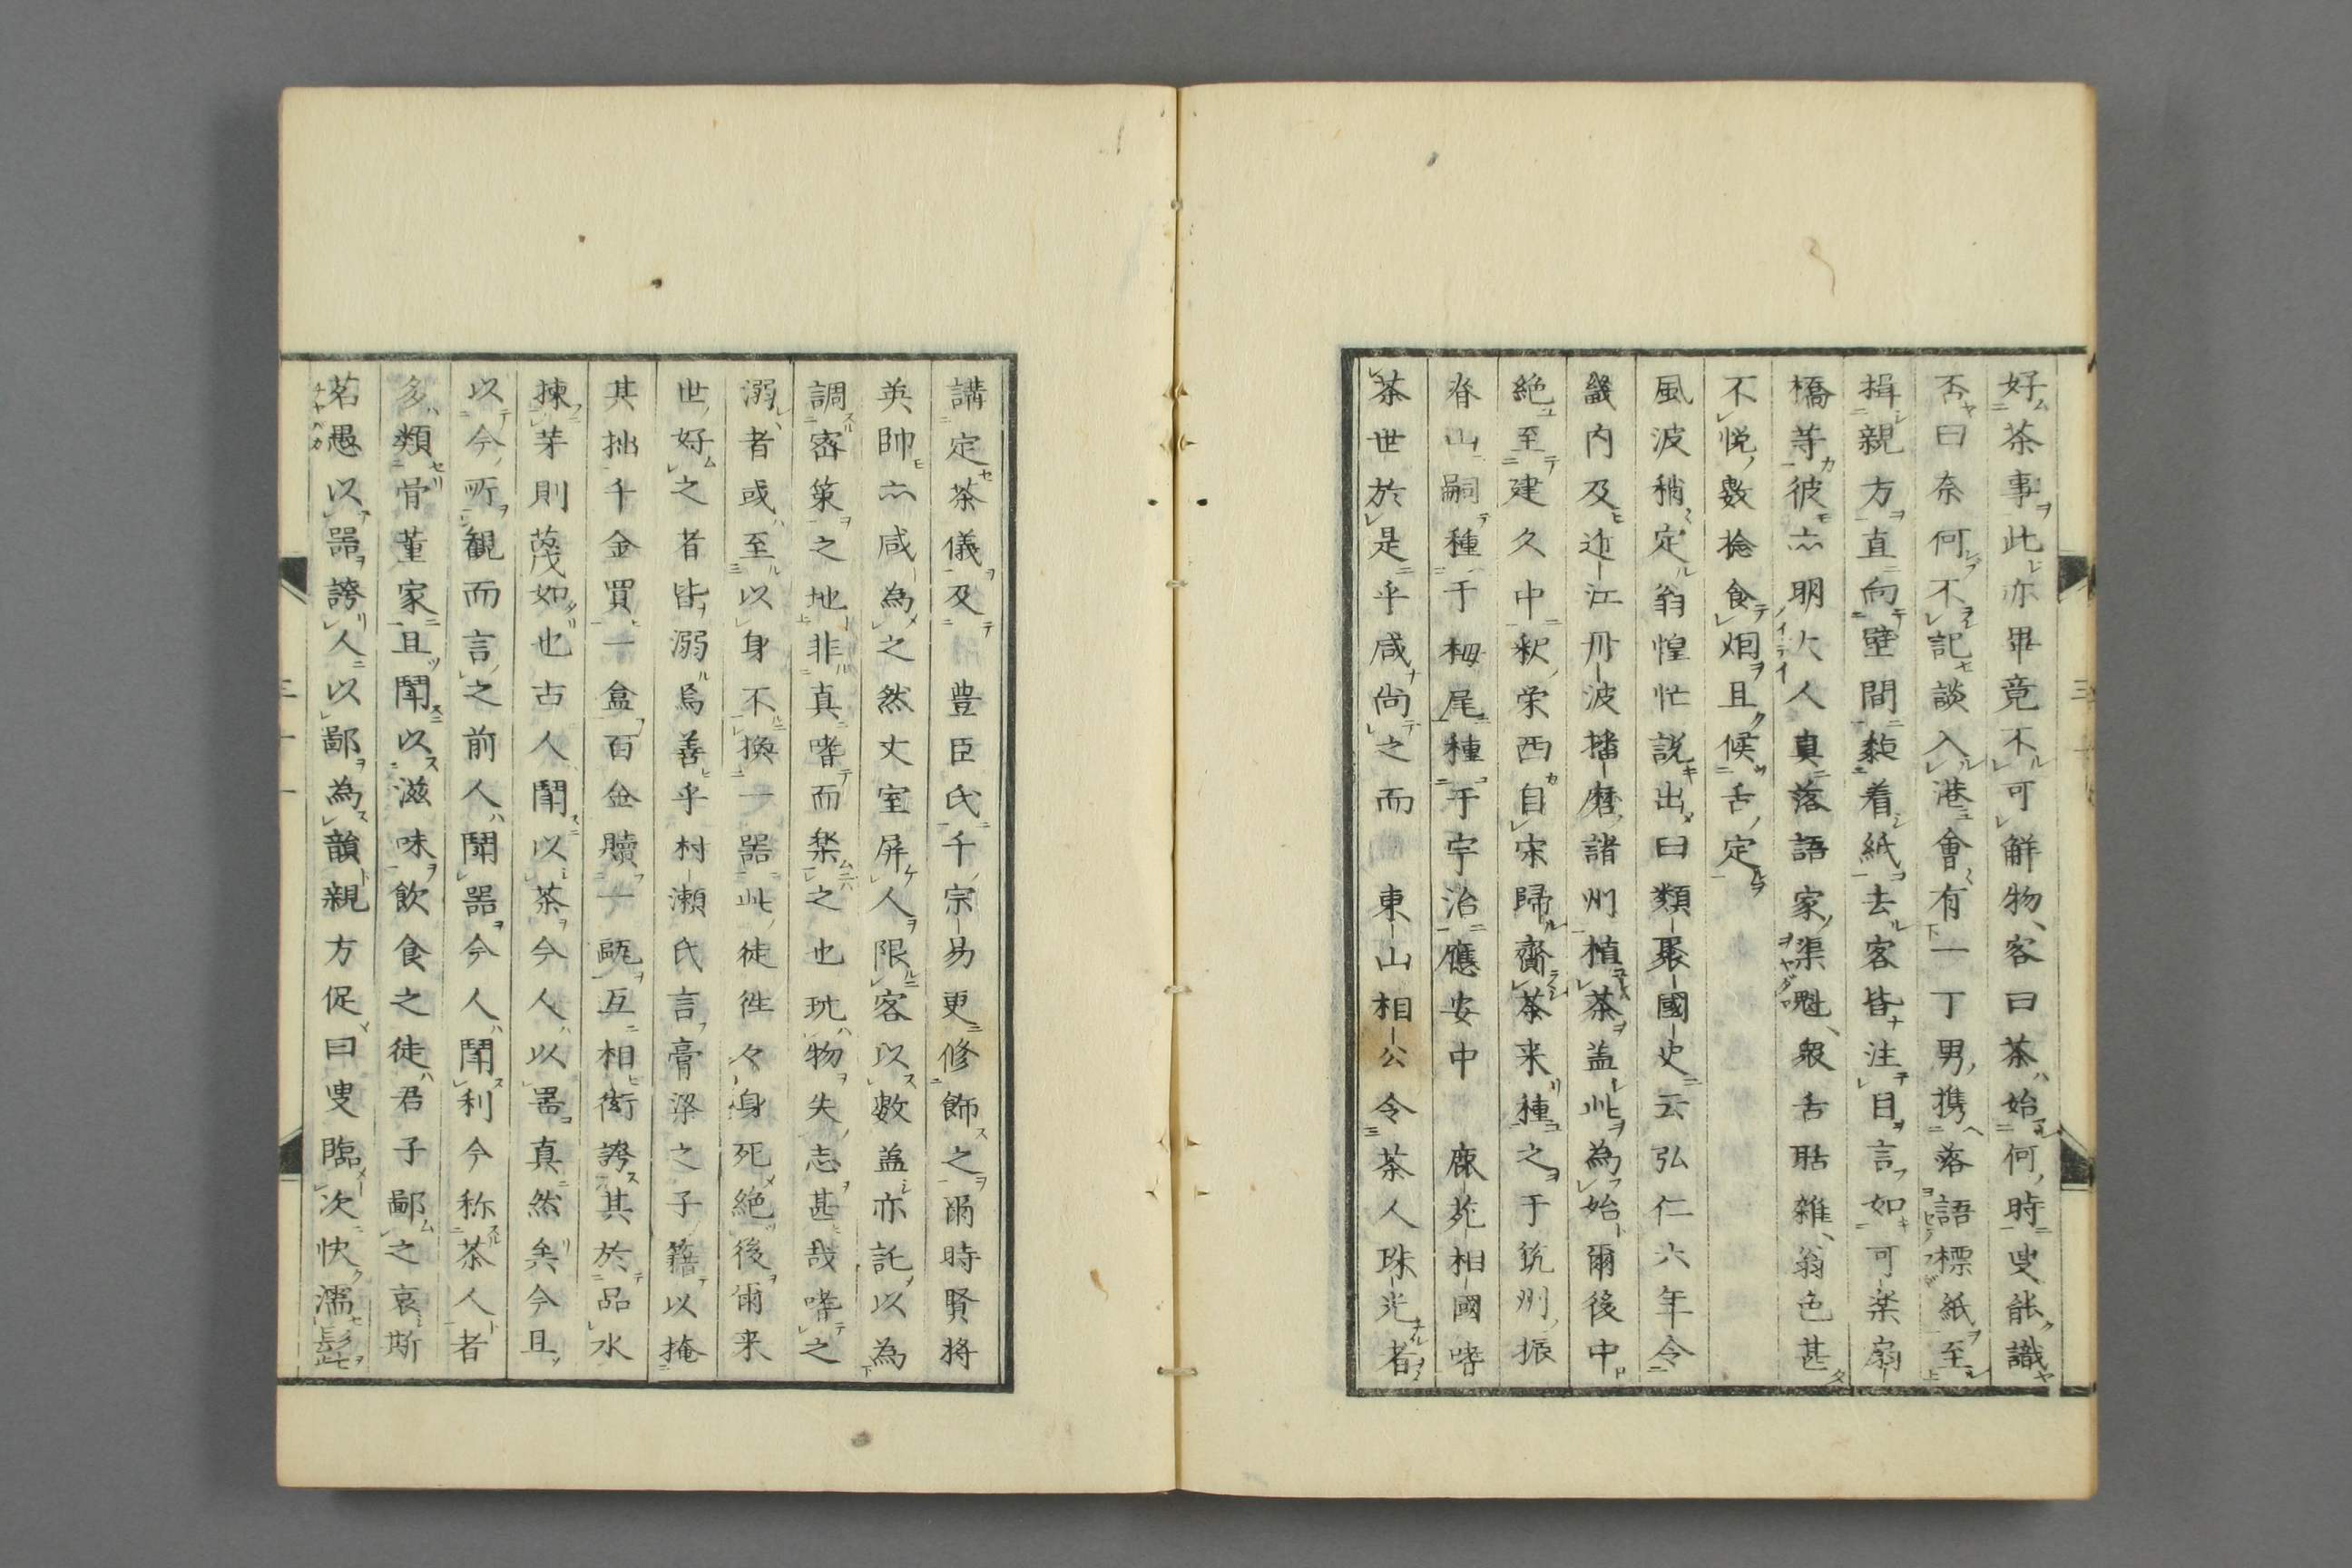 好茶事此亦畢竟不可解物客曰茶始何時叟能識
否曰奈何不記談入港會有一丁男携落語標紙至
揖親方直向壁間黏着紙去客皆注目言如可楽扇
橋等彼亦明大人真落語家渠魁衆舌聒雑翁色甚
不悦數捻食烟且候舌定
風波稍定翁惶忙説出曰類聚國史云弘仁六年令
畿内及近江丹波播磨諸州植茶盖此為始爾後中
絶至建久中釈栄西自宋歸齎茶来種之于筑州振
脊山嗣種于栂尾種于宇治應安中 鹿苑相國嗜
茶世於是乎咸尚之而 東山相公令茶人珠光者
講定茶儀及 豊臣氏千宗易更修飾之爾時賢将
英帥亦咸為之然丈室屏人限客以数盖亦託以為
調密策之地非真嗜而楽之也玩物失志甚哉嗜之
溺者或至以身不換一器此徒徃々身死絶後爾来
世好之者皆溺烏善乎村瀬氏言膏粱之子籍以掩
其拙千金買一盒百金贖一甌互相衒誇其於品水
揀芽則蔑如也古人闘以茶今人以器真然矣今且
以今所観而言之前人闘器今人闘利今称茶人者
多類骨董家且闘以滋味飲食之徒君子鄙之哀斯
茗愚以器誇人以鄙為韻親方促曰叟臨次快濡髭